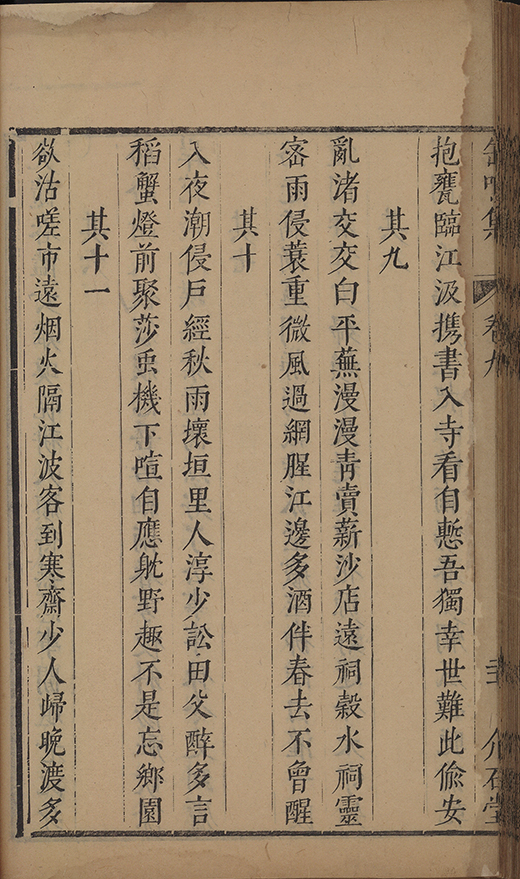 缶鳴集 卷九 介石堂
抱甕臨江汲携書入寺看自慙吾獨幸世難此偸安
其九
亂渚交交白平蕪漫漫青賣薪沙店遠祠穀水祠靈
宻雨侵蓑重微風過網腥江邊多酒伴春去不曾醒
其十
入夜潮侵戶經秋雨壞垣里人淳少訟田父醉多言
稻蟹燈前聚莎虫機下喧自應躭野趣不是忘鄉園
其十一
欲沽嗟市遠烟火隔江波客到寒齋少人歸晚渡多